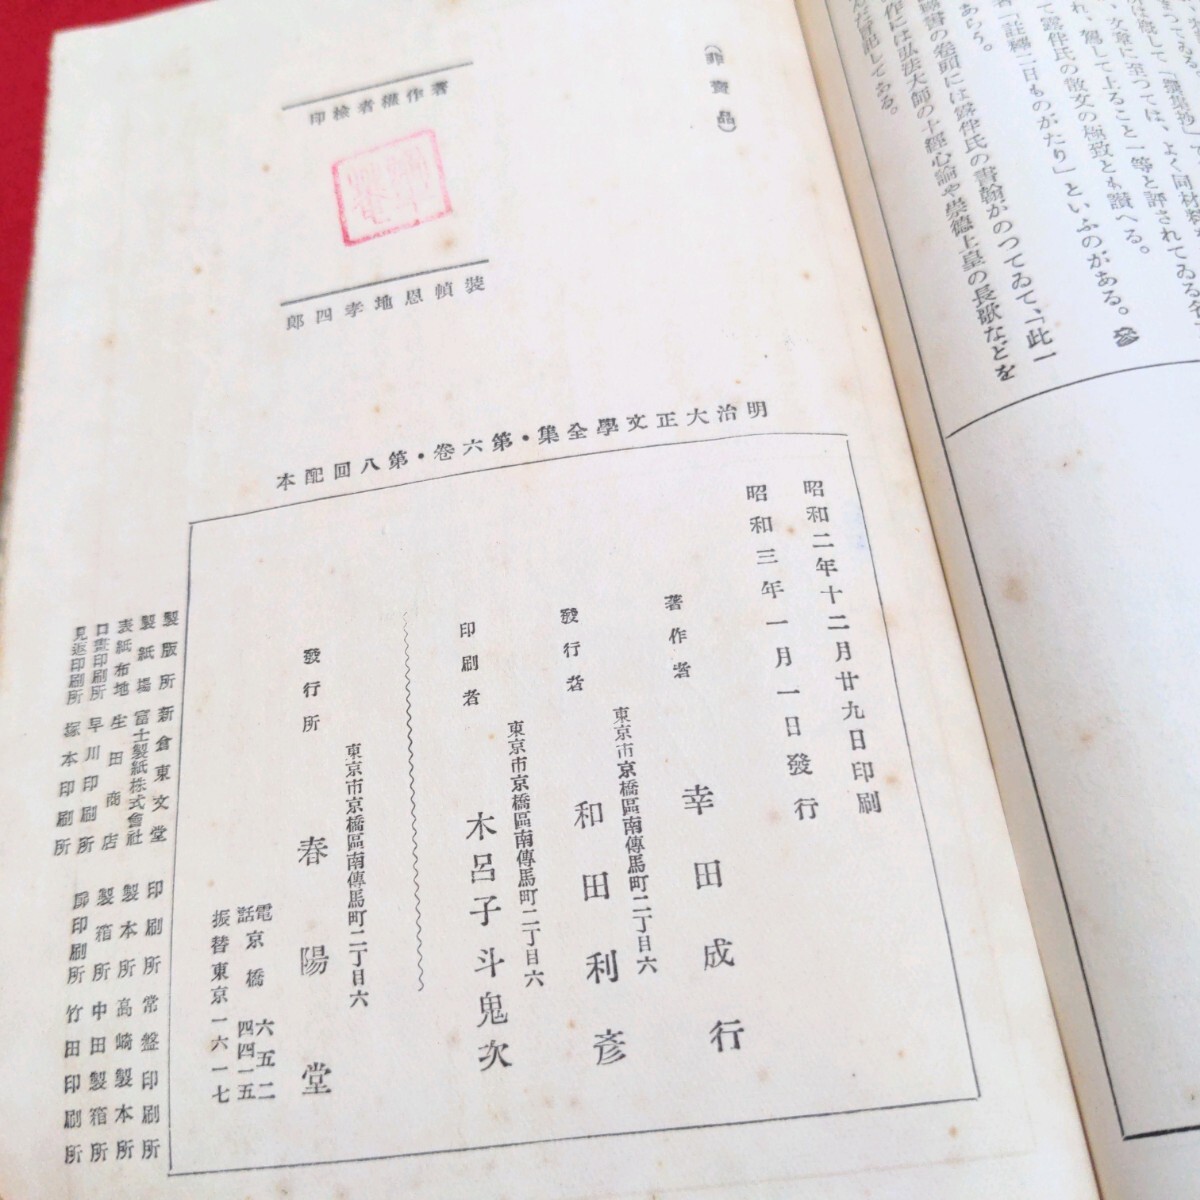 んだ旨記してある。
作には弘法大師の十經心論や崇德上皇の長歌などを
書の卷頭には露伴氏の書翰がのつてゐて、「此一
あらう。
「註釋二日ものがたり」といふのがある。
露伴氏の散文の極致とも讃へる。
れ、駕して上ること一等と評されてゐる
文章に至つては、よく同材料
(非賣品)
著作權者檢印
裝幀恩地孝四郎
明治大正文學全集・第六卷・第八回配本
昭和二年十二月廿九日印刷
昭和三年一月一日發行
著作者 幸田成行
東京市京橋區南傳馬町二丁目六
發行者 和田利彥
東京市京橋區南傳馬町二丁目六
印刷者 木呂子斗鬼次
東京市京橋區南傳馬町二丁目六
發行所 春陽堂
電話京橋 六五二 四四一五
振替東京一六一七
製版所 新倉東文堂
製紙場 富士製紙株式會社
表紙布地 生田商店
口畫印刷所 早川印刷所
見返印刷所 塚本印刷所
印刷所 常盤印刷所
製本所 高崎製本所
製箱所 中田製箱所
扉印刷所 竹田印刷所